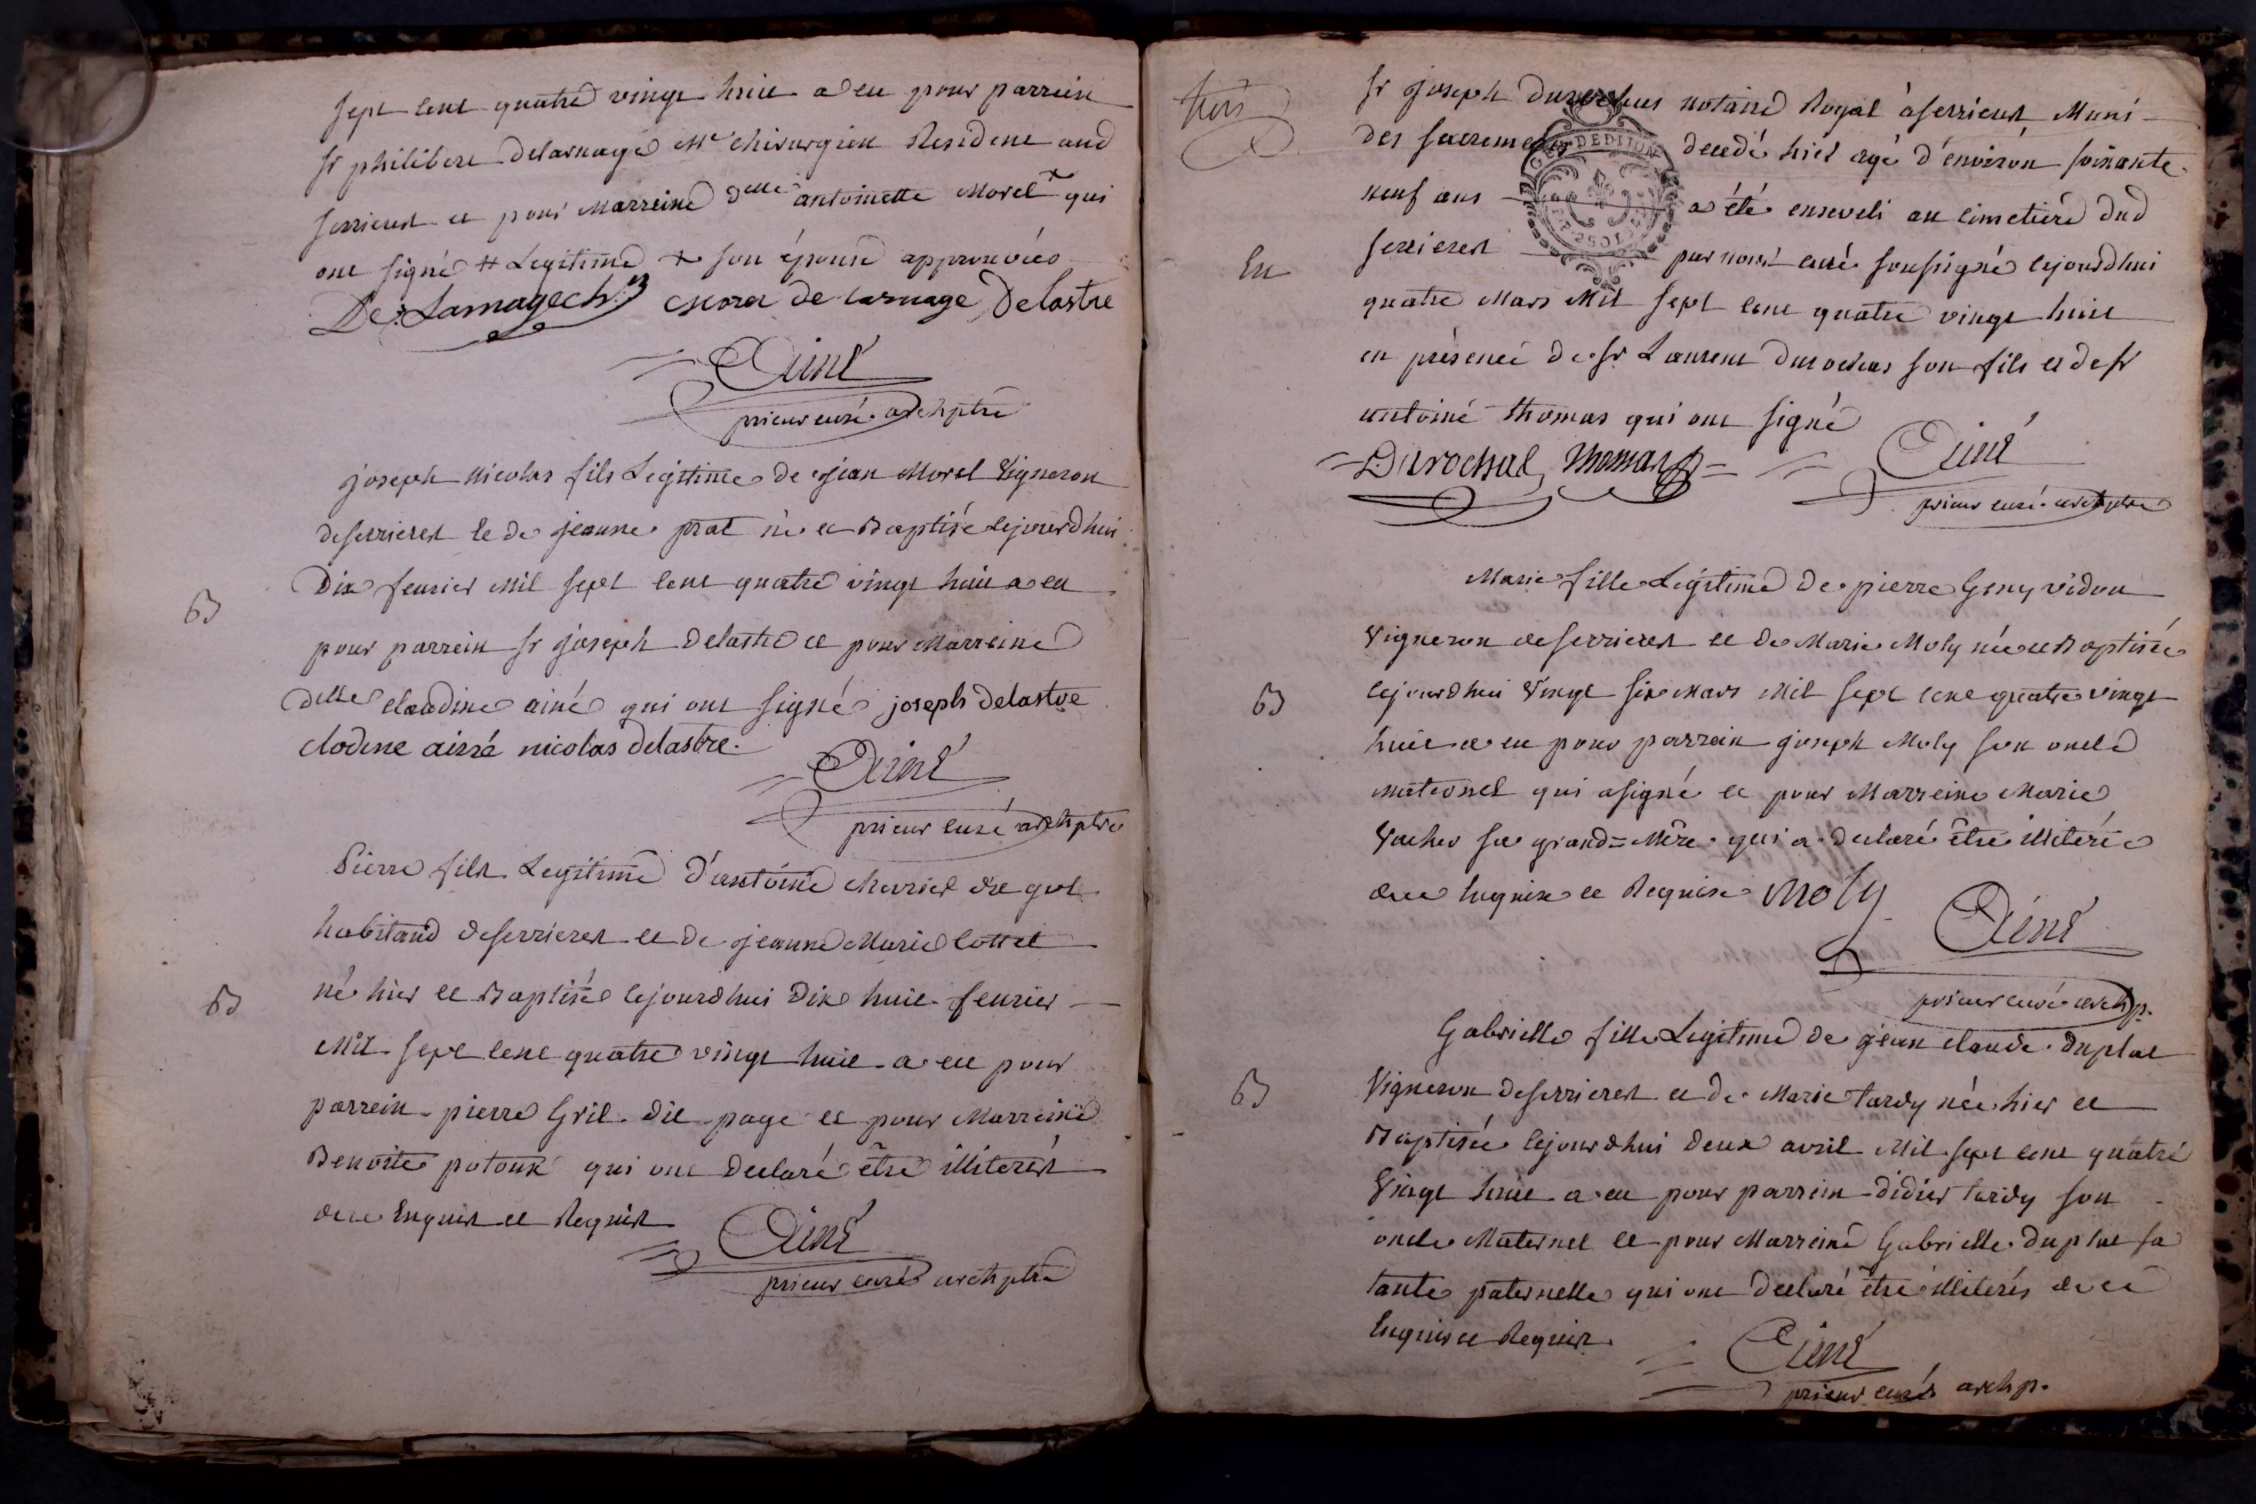 sept cent quatre vingt huit a eu pour parrein
sr philibert Delarnage Me chirurgien Resident aud
serrieres et pour Marreine delle antoinette Morel + qui
ont signé # Legitime + son épouse approuvées
De Larnage chn Morel de Larnage Delastre
Ainé
prieur curé archptre
joseph nicolas fils Legitime de jean Morel Vigneron
de serrieres et de jeanne prat né et Baptisé cejourdhui
B
Dix feurier Mil sept cent quatre vingt huit a eu
pour parrein sr joseph Delastre et pour Marreine
delle claudine ainé qui ont signé joseph delastre
clodine ainé nicolas delastre.
Ainé
prieur curé archptre
Pierre fils Legitime d'antoine Mercier
habitand de serrieres et de jeanne Marie cottet
B
né hier et Baptisé cejourdhui Dix huit feurier
Mil sept cent quatre vingt huit a eu pour
parrein pierre Gril dit page et pour Marreine
Benoite potoux qui ont declaré être illiterés
de ce Enquis et Requis
Ainé
prieur curé archptre
trois
sr joseph Durochas notaire Royal à serrieres Muni
des sacrements decedé hier agé d'environ soixante
neuf ans a été enseveli au cimetière dud
En
serrieres par nous curé soussigné cejourdhui
quatre Mars Mil sept cent quatre vingt huit
en présence de sr Laurent Durochas son fils et de sr
antoine thomas qui ont signé
Durochas Thomas
Ainé
prieur curé archptre
Marie fille Legitime de pierre Geny vidon
Vigneron de serrieres et de Marie Moly née et Baptisée
B
cejourdhui Vingt six Mars Mil sept cent quatre vingt
huit a eu pour parrein joseph Moly son oncle
Maternel qui a signé et pour Marreine Marie
Vacher sa grand=Mère qui a declaré être illiterée
de ce Enquise et Requise Moly
Ainé
prieur curé archp.
Gabrielle fille Legitime de jean claude duplat
B
Vigneron de serrieres et de Marie tardy née hier et
Baptisée cejourdhui deux avril Mil sept cent quatre
Vingt huit a eu pour parrein didier tardy son
oncle Maternel et pour Marreine Gabrielle duplat sa
tante paternelle qui ont declaré être illiterés de ce
Enquis et Requis.
Ainé
prieur curé archp.